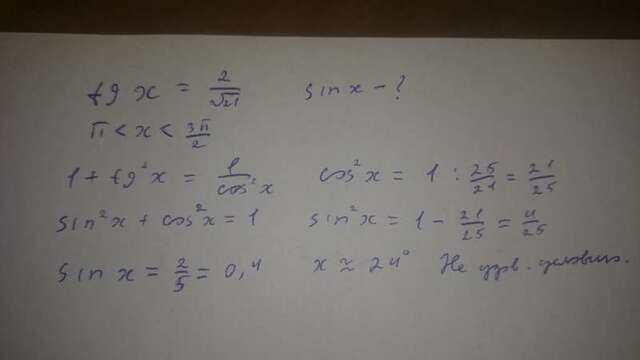 tg x = 2/√21 sin x - ?
π < x < 3π/2
1 + tg²x = 1/cos²x cos²x = 1 : 25/21 = 21/25
sin²x + cos²x = 1 sin²x = 1 - 21/25 = 4/25
sin x = 2/5 = 0,4 x ≈ 24° Не удв. условию.